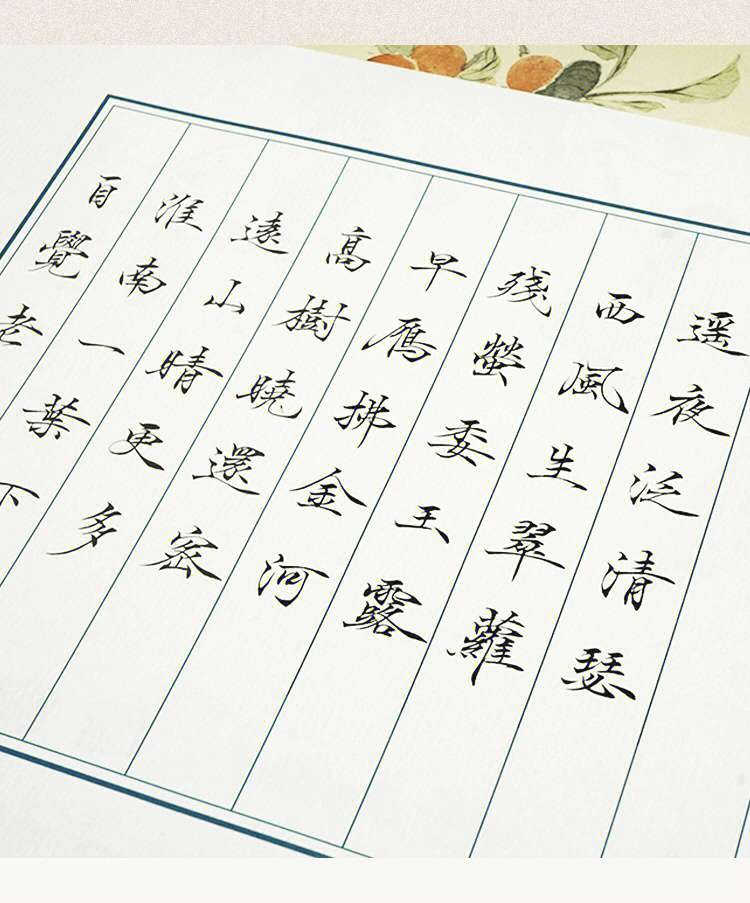 遥夜泛清瑟
西風生翠蘿
残螢委玉露
早雁拂金河
高樹曉還密
遠山晴更多
淮南一葉下
自覺老